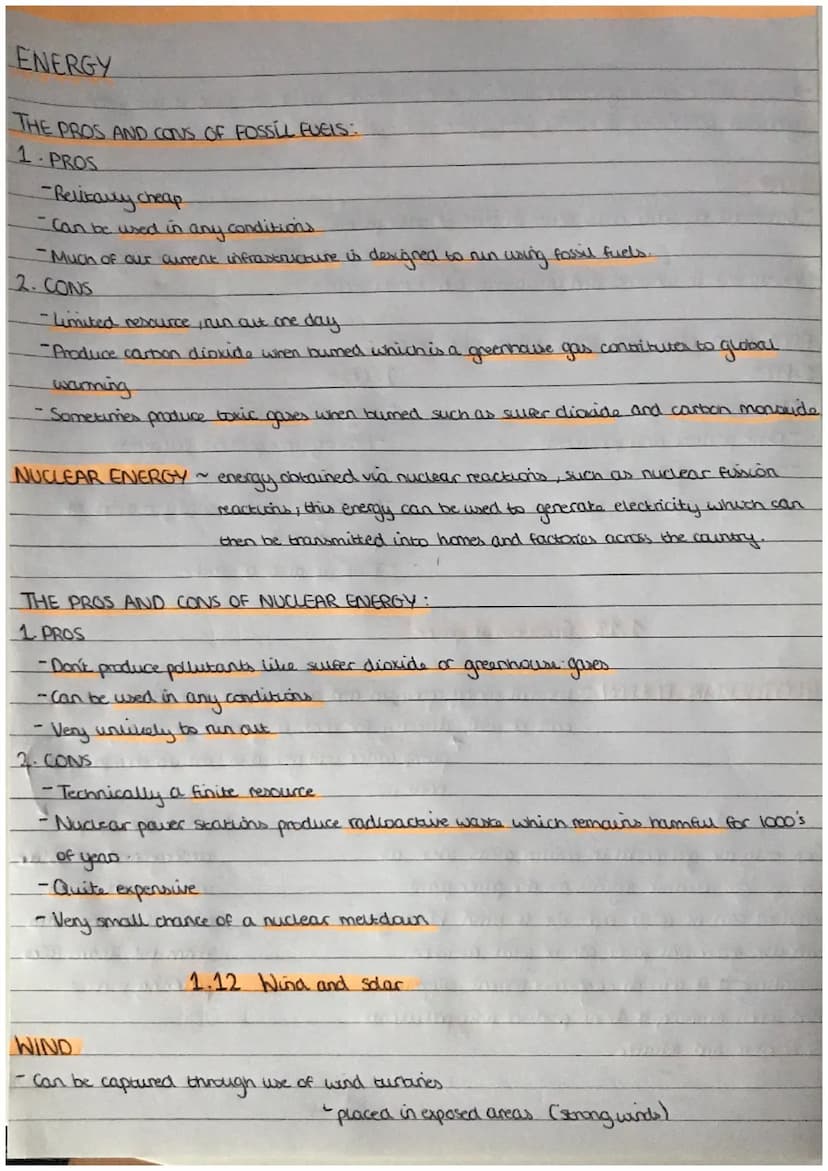 ENERGY
THE PROS AND CONS OF FOSSIL FUELS:
1. PROS
- Relitavly cheap
- Can be used in any conditions
- Much of our current infrastructure is designed to run using fossil fuels.
2. CONS
- Limited resource, run out one day
- Produce carbon dioxide when burned which is a greenhouse gas contributes to global
warming
- Sometimies produce toxic gases when burned such as sulfer dioxide and carbon monoxide
NUCLEAR ENERGY ~ energy obtained via nuclear reactions, such as nuclear fussion
reactions; this energy can be used to generate electricity which can
then be transmitted into homes and factories across the country.
THE PROS AND CONS OF NUCLEAR ENERGY:
1. PROS
- Don't produce pollutants like sulfer dioxide or greenhouse gases
- Can be used in any conditions
- Very unlikely to run out
2. CONS
- Technically a finite resource
- Nuclear power stations produce radioactive waste which remains harmful for 1000's
of years.
- Quite expensive
- Very small chance of a nuclear meltdown
1.12 Wind and solar
WIND
- Can be captured through use of wind turbines
- placed in exposed areas (strong winds)